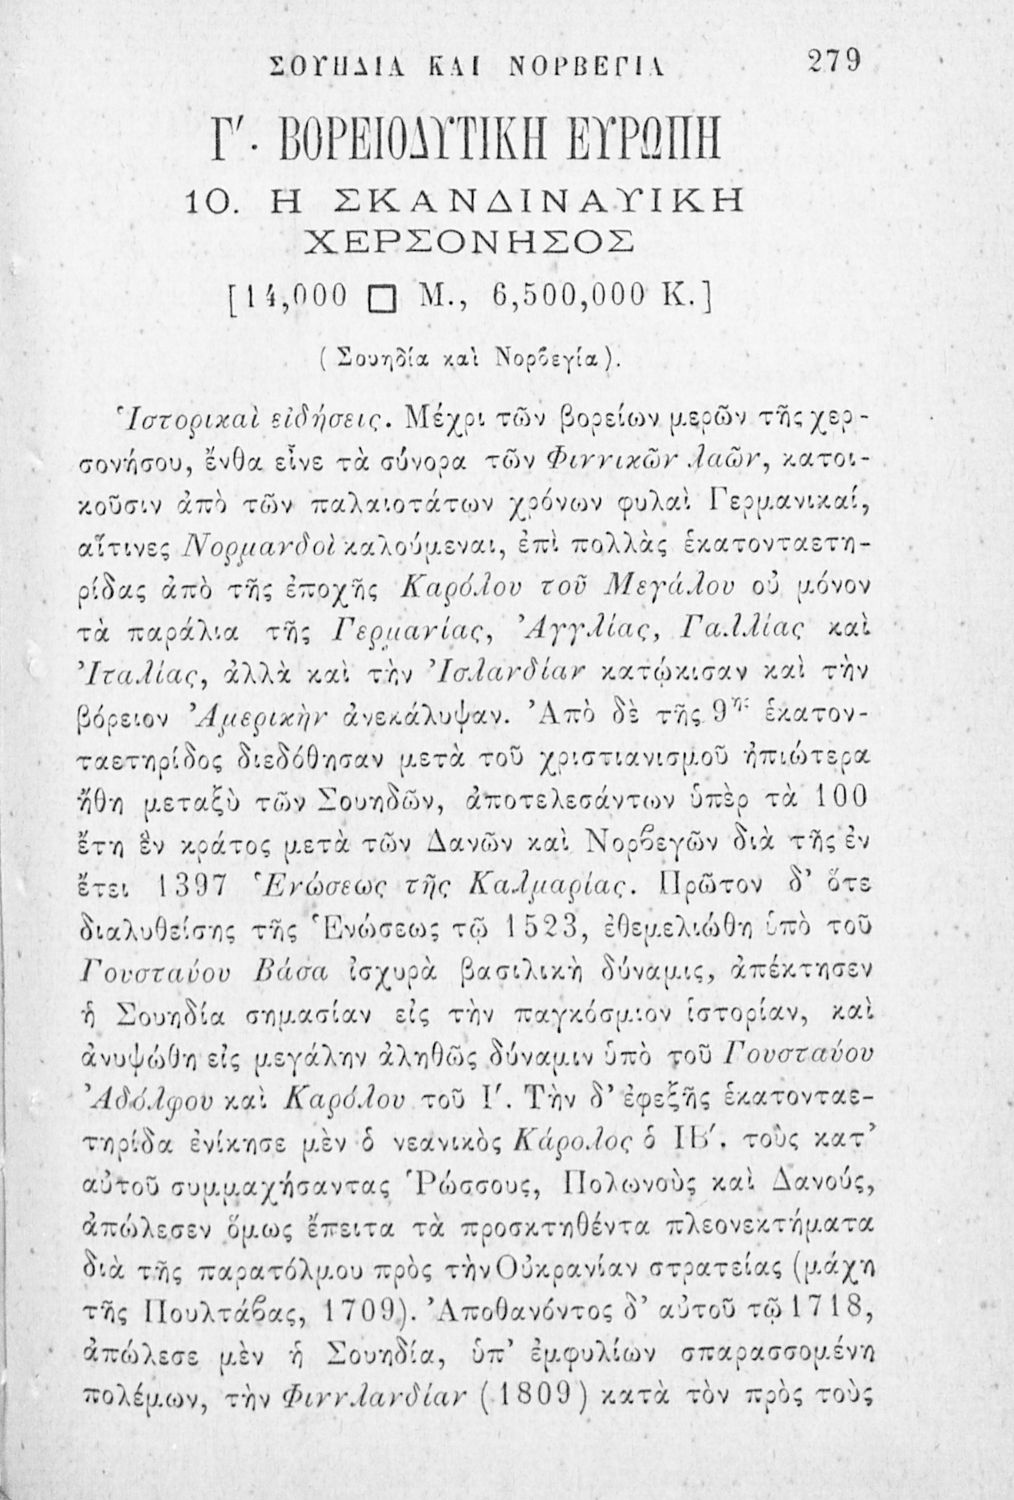 ΣΟΥΗΔΙΑ ΚΑΙ ΝΟΡΒΕΓΙΑ 279
Γ′. ΒΟΡΕΙΟΔΥΤΙΚΗ ΕΥΡΩΠΗ
10. Η ΣΚΑΝΔΙΝΑΥΙΚΗ
ΧΕΡΣΟΝΗΣΟΣ
[14,000 □ Μ., 6,500,000 Κ.]
(Σουηδία καὶ Νορβεγία).
Ἱστορικαὶ εἰδήσεις. Μέχρι τῶν βορείων μερῶν τῆς χερ-
σονήσου, ἔνθα εἶνε τὰ σύνορα τῶν Φιννικῶν λαῶν, κατοι-
κοῦσιν ἀπὸ τῶν παλαιοτάτων χρόνων φυλαὶ Γερμανικαί,
αἵτινες Νορμανδοὶ καλούμεναι, ἐπὶ πολλὰς ἑκατονταετη-
ρίδας ἀπὸ τῆς ἐποχῆς Καρόλου τοῦ Μεγάλου οὐ μόνον
τὰ παράλια τῆς Γερμανίας, Ἀγγλίας, Γαλλίας καὶ
Ἰταλίας, ἀλλὰ καὶ τὴν Ἰσλανδίαν κατῴκισαν καὶ τὴν
βόρειον Ἀμερικὴν ἀνεκάλυψαν. Ἀπὸ δὲ τῆς 9ης ἑκατον-
ταετηρίδος διεδόθησαν μετὰ τοῦ χριστιανισμοῦ ἠπιώτερα
ἤθη μεταξὺ τῶν Σουηδῶν, ἀποτελεσάντων ὑπὲρ τὰ 100
ἔτη ἓν κράτος μετὰ τῶν Δανῶν καὶ Νορβεγῶν διὰ τῆς ἐν
ἔτει 1397 Ἑνώσεως τῆς Καλμαρίας. Πρῶτον δ’ ὅτε
διαλυθείσης τῆς Ἑνώσεως τῷ 1523, ἐθεμελιώθη ὑπὸ τοῦ
Γουσταύου Βάσα ἰσχυρὰ βασιλικὴ δύναμις, ἀπέκτησεν
ἡ Σουηδία σημασίαν εἰς τὴν παγκόσμιον ἱστορίαν, καὶ
ἀνυψώθη εἰς μεγάλην ἀληθῶς δύναμιν ὑπὸ τοῦ Γουσταύου
Ἀδόλφου καὶ Καρόλου τοῦ Ι′. Τὴν δ’ ἐφεξῆς ἑκατονταε-
τηρίδα ἐνίκησε μὲν ὁ νεανικὸς Κάρολος ὁ ΙΒ′. τοὺς κατ’
αὐτοῦ συμμαχήσαντας Ῥώσσους, Πολωνοὺς καὶ Δανούς,
ἀπώλεσεν ὅμως ἔπειτα τὰ προσκτηθέντα πλεονεκτήματα
διὰ τῆς παρατόλμου πρὸς τὴν Οὐκρανίαν στρατείας (μάχη
τῆς Πουλτάβας, 1709). Ἀποθανόντος δ’ αὐτοῦ τῷ 1718,
ἀπώλεσε μὲν ἡ Σουηδία, ὑπ’ ἐμφυλίων σπαρασσομένη
πολέμων, τὴν Φιννλανδίαν (1809) κατὰ τὸν πρὸς τοὺς